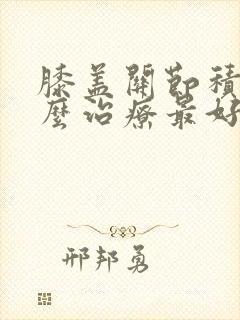 膝盖關節積
麼治療最好
邢邦勇